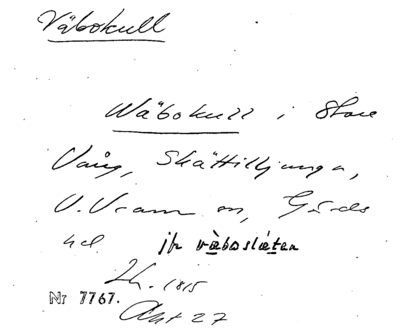 Väbokull
Wäbokull i Stora
Vång, Skättilljunga,
V. Vram sn, Gärds
hd. jfr väboslåten
Lh. 1815
Nr 7767. Akt 27